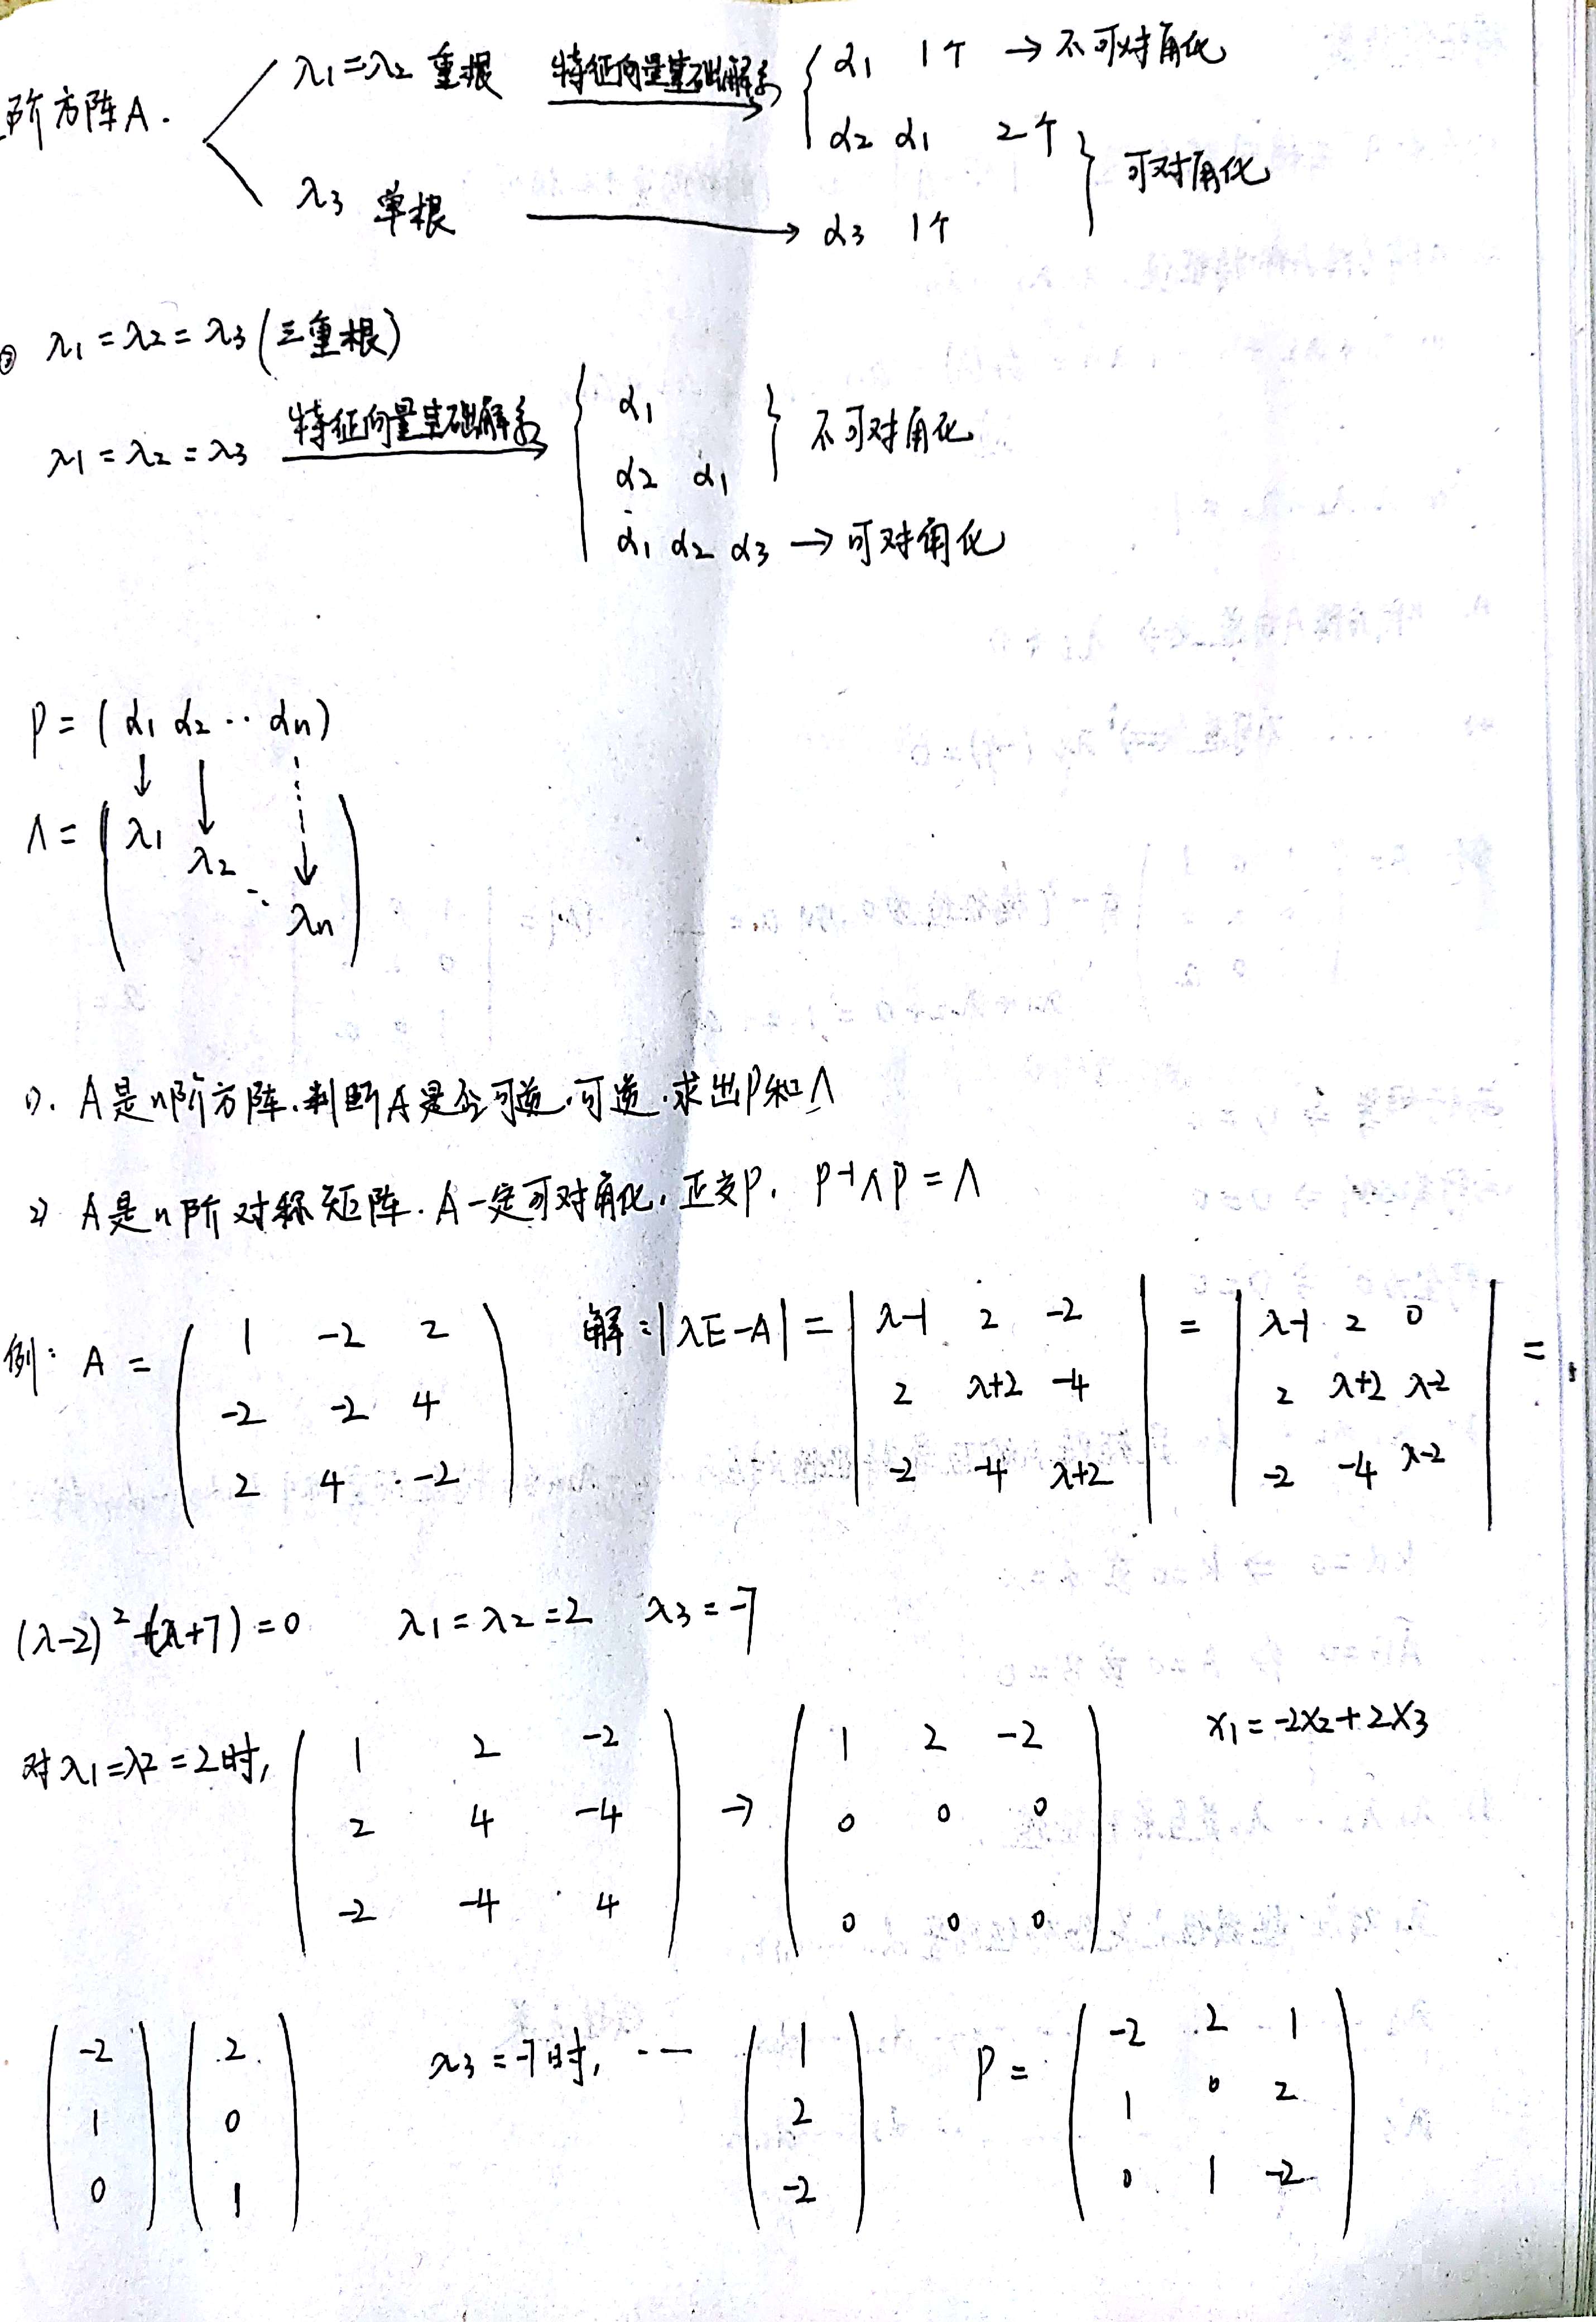 阶方阵A.
λ1=λ2 重根 特征向量基础解系 { α1 1个 → 不可对角化
α2 α1 2个
λ3 单根 → α3 1个 } 可对角化
② λ1=λ2=λ3(三重根)
λ1=λ2=λ3 特征向量基础解系 { α1
α2 α1 } 不可对角化
α1 α2 α3 → 可对角化
P=(α1 α2 ·· αn)
↓ ↓ ↓
Λ= ( λ1
λ2
⋱
λn )
1). A是n阶方阵.判断A是否可逆.可逆.求出P和Λ
2) A是n阶对称矩阵. A一定可对角化. 正交P. P-1ΛP=Λ
例: A = ( 1 -2 2
-2 -2 4
2 4 -2 )
解:|λE-A| = | λ-1 2 -2
2 λ+2 -4
-2 -4 λ+2 |
= | λ-1 2 0
2 λ+2 λ-2
-2 -4 λ-2 | =
(λ-2)²(λ+7)=0 λ1=λ2=2 λ3=-7
对λ1=λ2=2时, ( 1 2 -2
2 4 -4
-2 -4 4 )
→ ( 1 2 -2
0 0 0
0 0 0 )
x1=-2x2+2x3
( -2
1
0 )
( 2
0
1 )
λ3=-7时, ·· — ( 1
2
-2 )
P= ( -2 2 1
1 0 2
0 1 -2 )